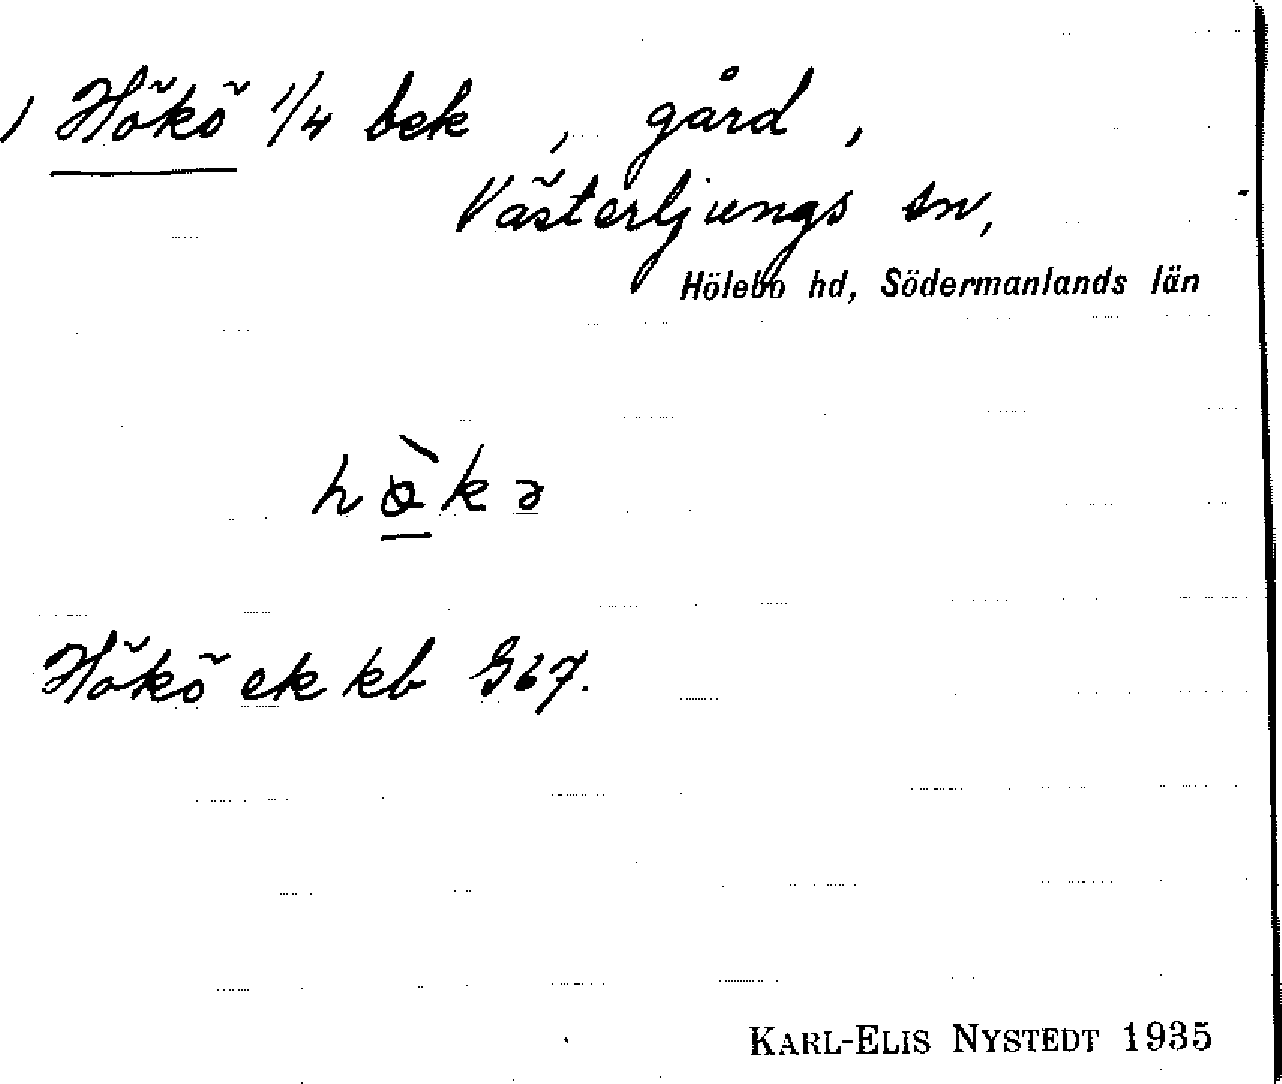 Hökö 1/4 bek , gård ,
Västerljungs sn,
Hölebo hd, Södermanlands län
Hökö ek kb 367.
KARL-ELIS NYSTEDT 1935